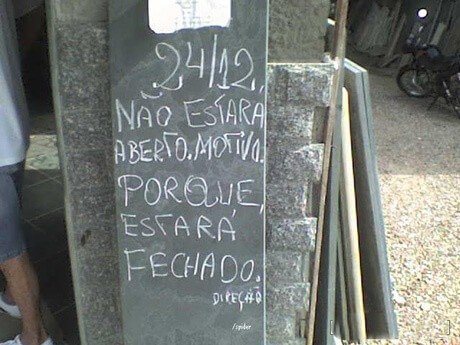 24/12,
NÃO ESTARÁ
ABERTO. MOTIVO.
PORQUE,
ESTARÁ
FECHADO.
DIREÇÃO
/spider